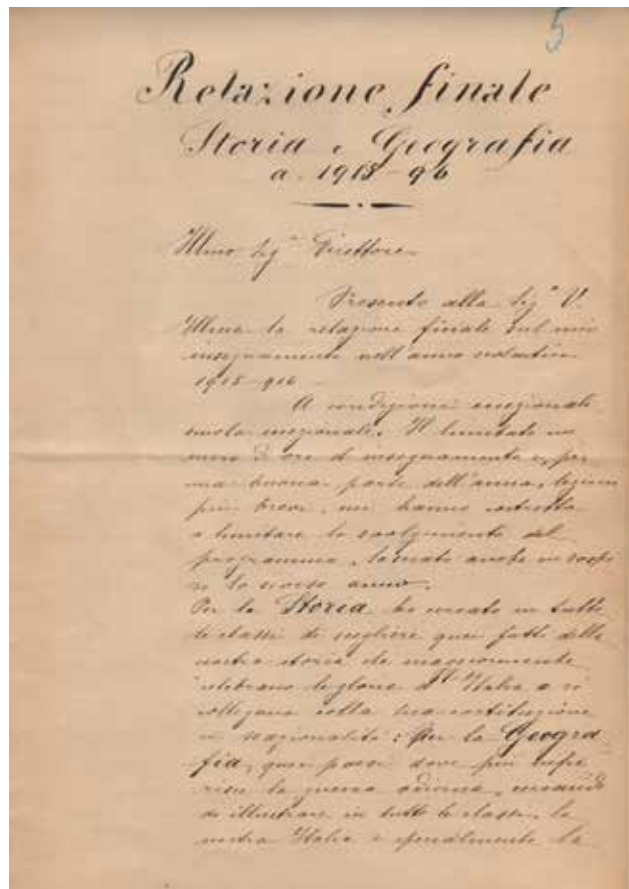 5
Relazione finale
Storia e Geografia
a. 1915-96
Illmo Sigr Direttore
Presento alla Sigа V.
Illma la relazione finale sul mio
insegnamento nell'anno scolastico
1915-916
A condizioni eccezionali
scuola eccezionale. Il limitato nu
mero di ore d'insegnamento e, per
una buona parte dell'anno, lezioni
più brevi, mi hanno costretta
a limitare lo svolgimento del
programma, lasciato anche in sospe
so lo scorso anno.
Per la Storia ho cercato in tutte
le classi di scegliere quei fatti della
nostra storia che maggiormente
celebrano le glorie d'Italia e si
collegano colla sua costituzione
in nazionalità; Per la Geogra
fia, quei paesi dove più infie
risce la guerra odierna, cercando
di illustrare in tutte le classi, la
nostra Italia e specialmente la